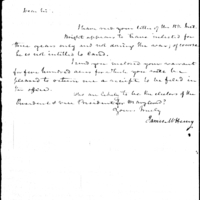 Dear Sir.
I have read your letter of the 11th Inst.
Knight appears to have enlisted for
three years only and not during the war, of course
he is not intitled to Land.
I send you enclosed your warrant
for four hundred acres for which you will be
pleased to return me a receipt to be filed in
the office.
Who are likely to be the electors of the
President & vice President for Maryland?
Yours truly
James McHenry